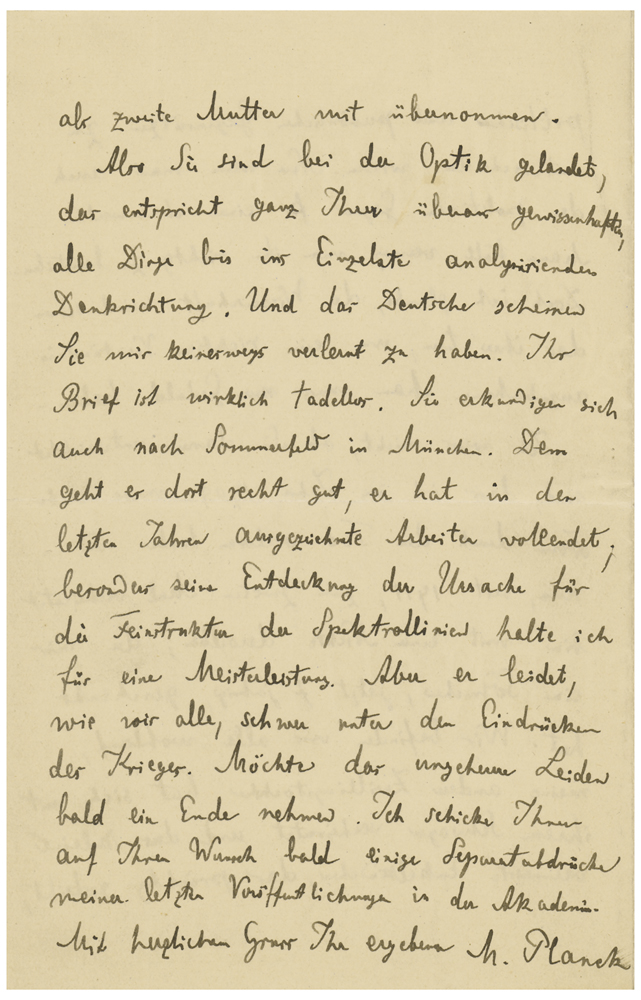 als zweite Mutter mit übernommen.
Also Sie sind bei der Optik gelandet,
das entspricht ganz Ihrer überaus gewissenhaften,
alle Dinge bis ins Einzelste analysierenden
Denkrichtung. Und das Deutsche scheinen
Sie mir keineswegs verlernt zu haben. Ihr
Brief ist wirklich tadellos. Sie erkundigen sich
auch nach Sommerfeld in München. Dem
geht es dort recht gut, er hat in den
letzten Jahren ausgezeichnete Arbeiten vollendet;
besonders seine Entdeckung der Ursache für
die Feinstruktur der Spektrallinien halte ich
für eine Meisterleistung. Aber er leidet,
wie wir alle, schwer unter den Eindrücken
des Krieges. Möchte das ungeheure Leiden
bald ein Ende nehmen. Ich schicke Ihnen
auf Ihren Wunsch bald einige Separatabdrücke
meiner letzten Veröffentlichungen in der Akademie.
Mit herzlichem Gruss Ihr ergebener M. Planck